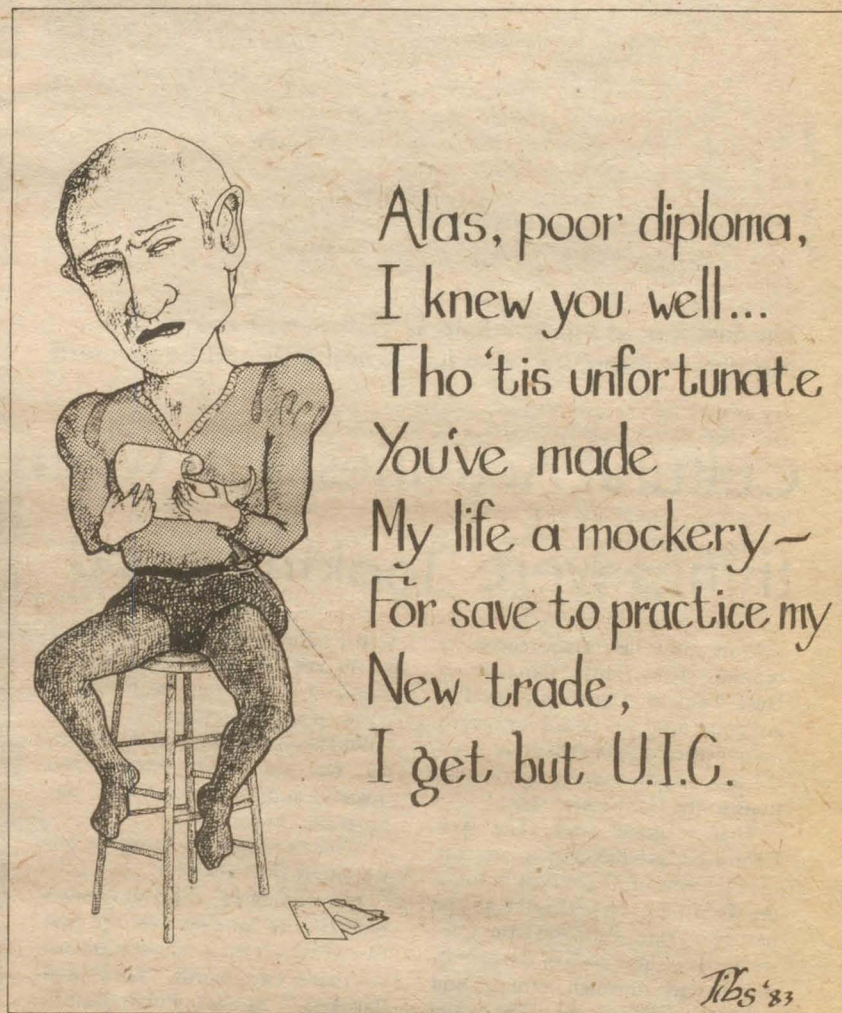 Alas, poor diploma,
I knew you well...
Tho 'tis unfortunate
You've made
My life a mockery~
For save to practice my
New trade,
I get but U.I.C.
Tibs '83